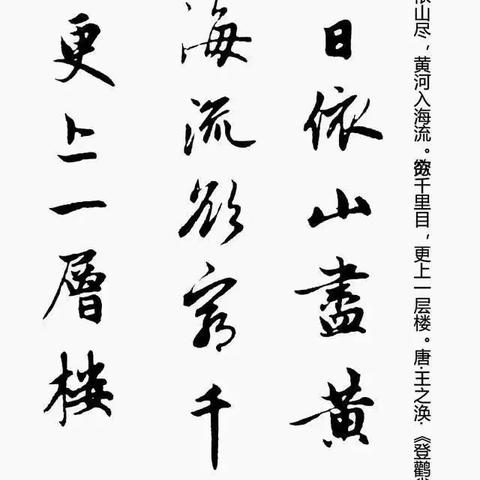 依山尽，黄河入海流。欲穷千里目，更上一层楼。唐·王之涣·《登鹳
日依山盡黄
海流欲窮千
更上一層楼